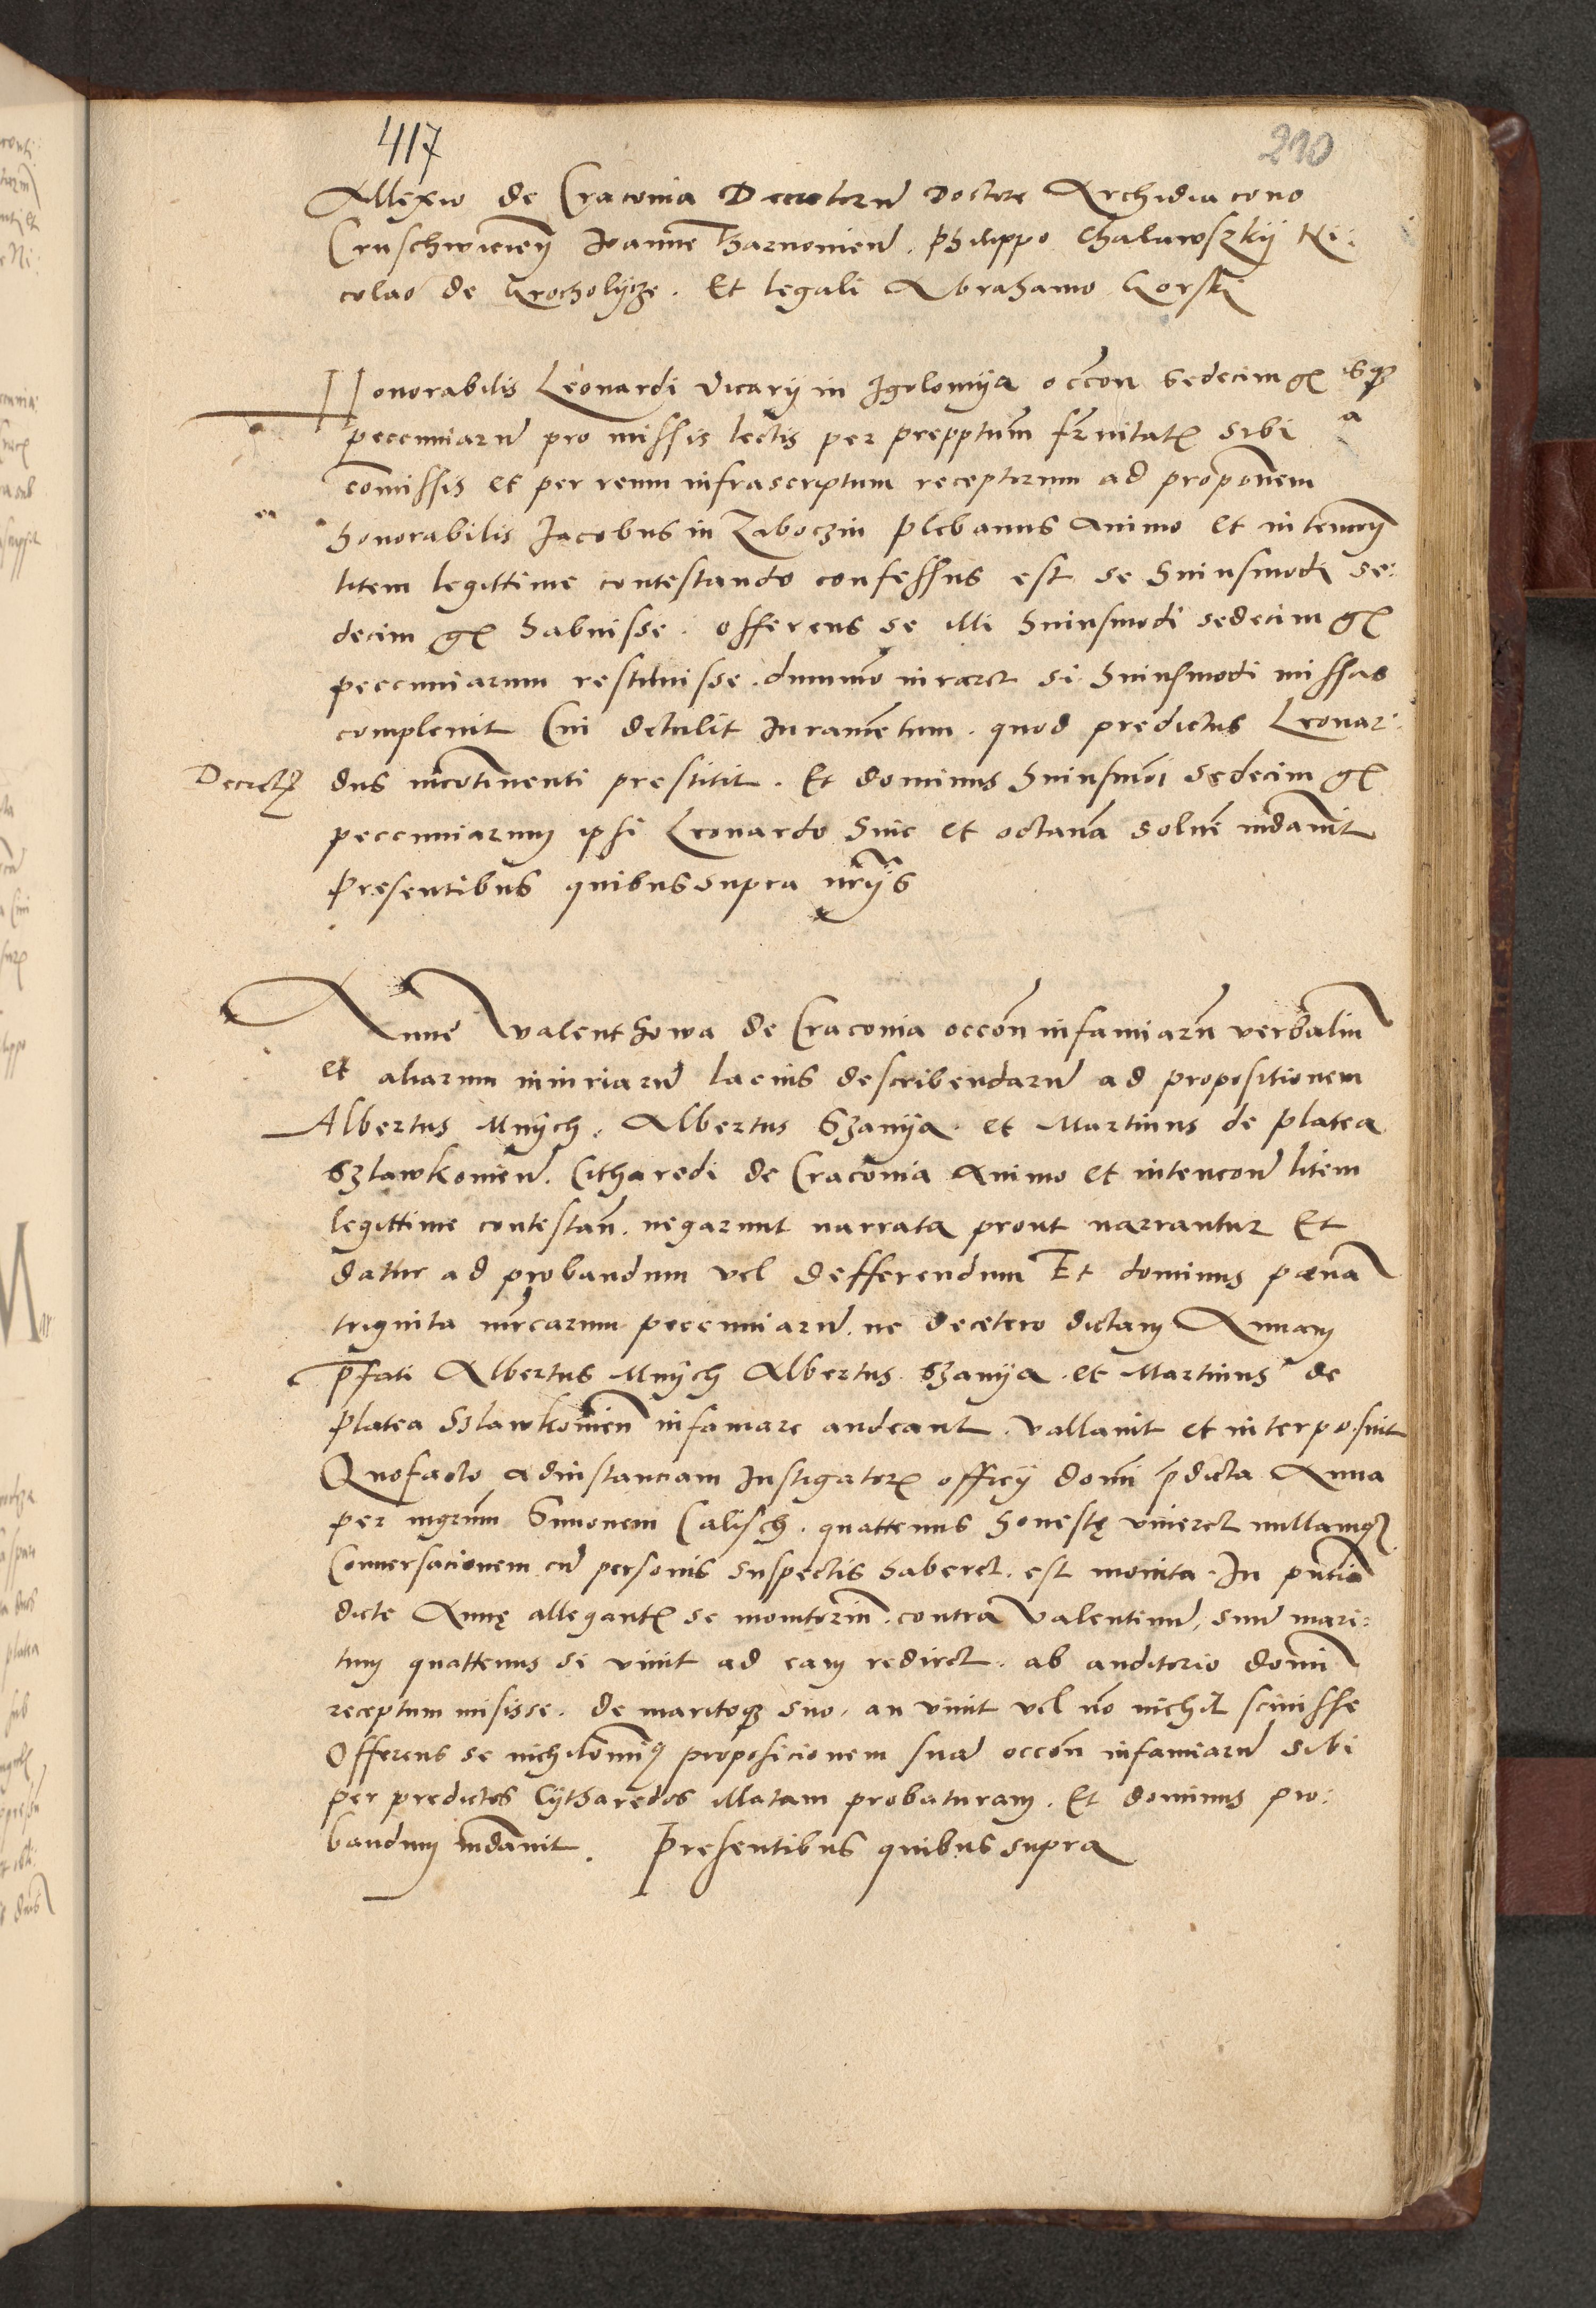 417
210
Allexio de Cracouia Decretorum Doctore Archidiacono
Cruschwicien Joanne Tharnowien. Philippo Chalawszkÿ Ni:
colao de Grocholÿcze. Et legali Abrahamo Gorski
Honorabilis Leonardi vicarÿ in Jgolomÿa occōn sedecim gr
pecuniarum pro missis lectis per prepptum frnitatis sibi
cōmissis et per reum infrascriptum receptorum ad proponem
honorabilis Jacobus in Zaboczin plebanus animo et intencoñ
litem legittime contestando confessus est se huiusmodi se:
decim gr habuisse. offerens se illi huiusmodi sedecim gr
pecuniarum restituisse. dummō iuraret si huiusmodi missas
compleuit Cui detulit Juramētum. quod predictus Leonar:
Decretum
dus incōtinenti prestitit. Et dominus huiusmōi sedecim gr
pecuniarum ipsi Leonardo hinc et octauā soluē mdauit
Presentibus quibus supra
Anne Valenthowa de Cracouia occōn infamiarū verbaliū
et aliarum iniuriarū lacius describendarū ad propositionem
Albertus Mnÿch. Albertus Szanÿa. et Martinus de platea
Szlawkowien. Citharedi de Cracouia Animo et intencoñ litem
legittime contestañ. negarunt narrata prout narrantur Et
datur ad probandum vel defferendum Et dominus pœna
triginta mrcarum pecuniarū. ne decetero dictam Annam
p̄fati Albertus Mnÿch Albertus Szanÿa. et Martinus de
platea Szlawkowien infamare audeant. vallauit et interposuit
Quofacto adinstanciam Instigatoris officÿ domī p̄dicta Anna
per mgrum Simonem Calisch. quattenus honestę viueret nullamq3
Conuersacionem cū personis suspectis haberet. est monita. In pñtia
dicte Annę allegantis se monitorium contra Valentinū, suū mari:
tum quattenus si viuit ad eam rediret. ab auditorio domī
receptum misisse. de maritoq3 suo. an viuit vel nō nichil sciuisse
Offerens se nichilominus proposicionem suā occōn infamiarū sibi
per predictos Cÿtharedos illatam probaturam. Et dominus pro:
bandum mdauit. Presentibus quibus supra